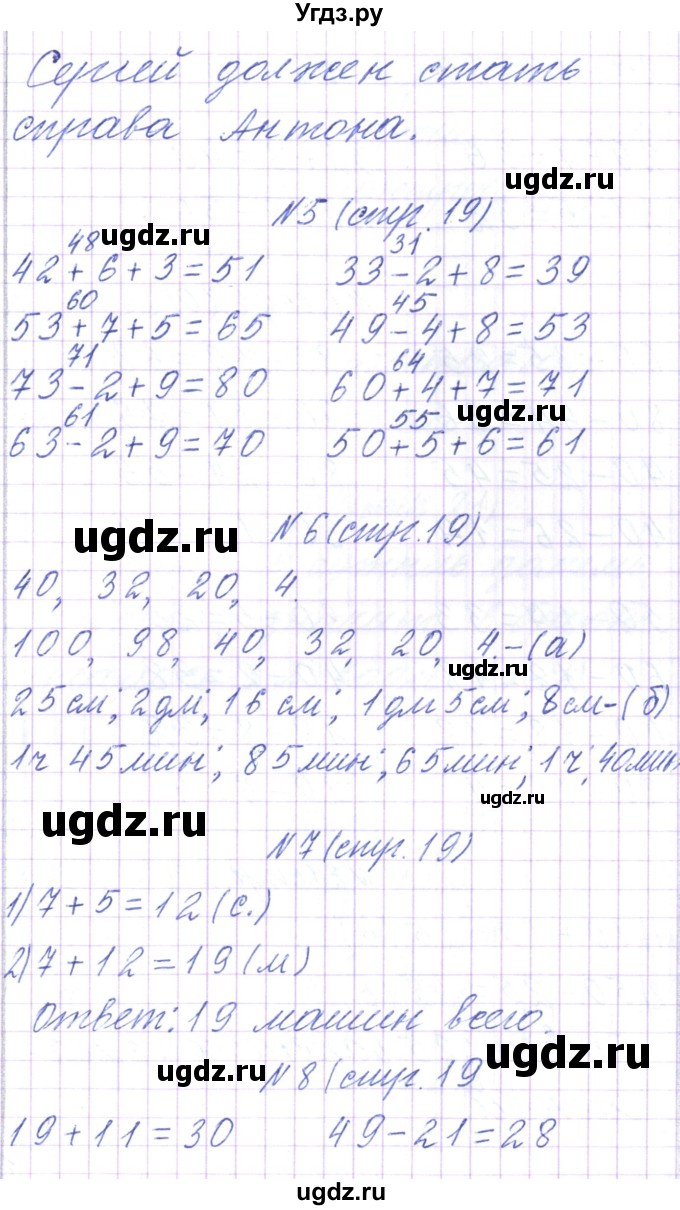 Угдз.ру
Сергей должен стать
справа Антона.
ugdz.ru
N5 (стр. 19)
ugdz.ru
48 31
42 + 6 + 3 = 51 33 - 2 + 8 = 39
60 45
53 + 7 + 5 = 65 49 - 4 + 8 = 53
71 64
73 - 2 + 9 = 80 60 + 4 + 7 = 71
ugdz.ru
61 55
63 - 2 + 9 = 70 50 + 5 + 6 = 61
ugdz.ru
N6 (стр. 19)
40, 32, 20, 4.
100, 98, 40, 32, 20, 4. - (а)
ugdz.ru
25 см; 2 дм; 16 см; 1 дм 5 см; 8 см - (б)
1 ч 45 мин; 85 мин; 65 мин; 1 ч; 40 мин
ugdz.ru
ugdz.ru
N7 (стр. 19)
1) 7 + 5 = 12 (с.)
2) 7 + 12 = 19 (м)
Ответ: 19 машин всего.
ugdz.ru
ugdz.ru
N8 (стр. 19
19 + 11 = 30 49 - 21 = 28
ugdz.ru